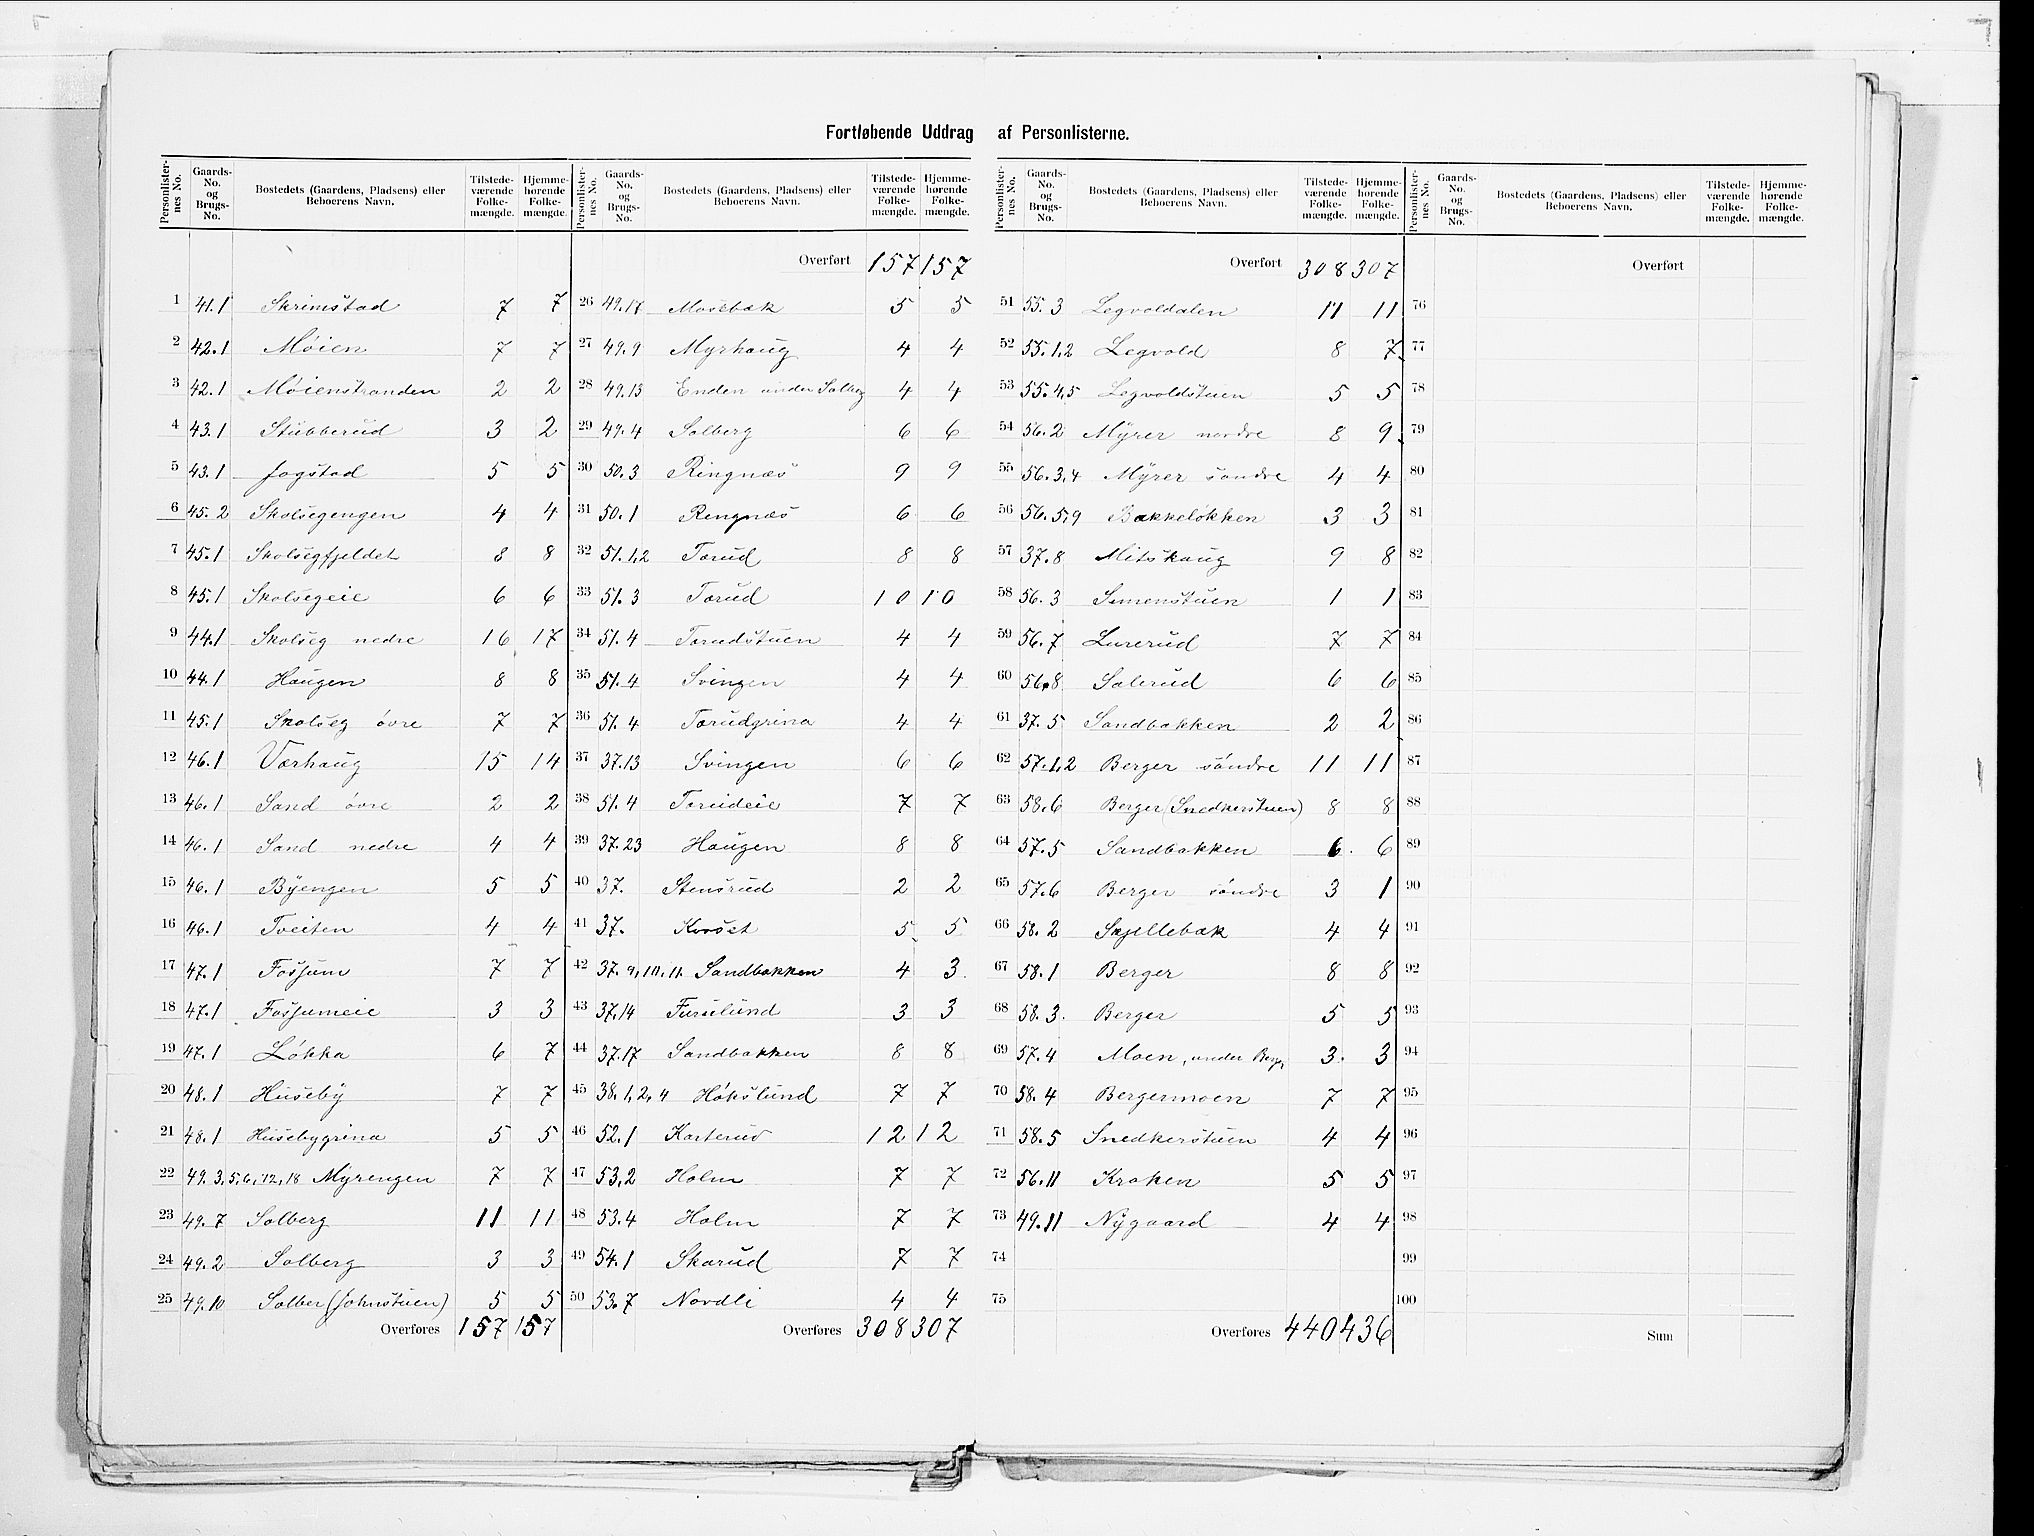 Fortløbende Uddrag af Personlisternе.
Personlister-nes No. Gaards-No. og Brugs-No. Bostedets (Gaardens, Pladsens) eller Beboerens Navn. Tilstede-værende Folke-mængde. Hjemme-hørende Folke-mængde.
1 41.1 Skrimstad 7 7
2 42.1 Møien 7 7
3 42.1 Møienstranden 2 2
4 43.1 Stubberud 3 2
5 43.1 Jogstad 5 5
6 45.2 Skolsegengen 4 4
7 45.1 Skolsegfjeldet 8 8
8 45.1 Skolsegeie 6 6
9 44.1 Skolseg nedre 16 17
10 44.1 Haugen 8 8
11 45.1 Skolseg øvre 7 7
12 46.1 Værhaug 15 14
13 46.1 Sand øvre 2 2
14 46.1 Sand nedre 4 4
15 46.1 Byengen 5 5
16 46.1 Tveiten 4 4
17 47.1 Fossum 7 7
18 47.1 Fossumeie 3 3
19 47.1 Løkka 6 7
20 48.1 Huseby 7 7
21 48.1 Husebygrina 5 5
22 49.3,5,6,12,18 Myrengen 7 7
23 49.7 Solberg 11 11
24 49.2 Solberg 3 3
25 49.10 Solber (Johnstuen) 5 5
Overføres 157 157
Personlister-nes No. Gaards-No. og Brugs-No. Bostedets (Gaardens, Pladsens) eller Beboerens Navn. Tilstede-værende Folke-mængde. Hjemme-hørende Folke-mængde.
Overført 157 157
26 49.17 Mosebæk 5 5
27 49.9 Myrhaug 4 4
28 49.13 Enden under Solberg 4 4
29 49.4 Solberg 6 6
30 50.3 Ringnæs 9 9
31 50.1 Ringnæs 6 6
32 51.1,2 Torud 8 8
33 51.3 Torud 10 10
34 51.4 Torudstuen 4 4
35 51.4 Svingen 4 4
36 51.4 Torudgrina 4 4
37 37.13 Svingen 6 6
38 51.4 Torudeie 7 7
39 37.23 Haugen 8 8
40 37. Stensrud 2 2
41 37. 5 5
42 37.9,10,11 Sandbakken 4 3
43 37.14 Furulund 3 3
44 37.17 Sandbakken 8 8
45 38.1,2,4 Hokslund 7 7
46 52.1 Korterud 12 12
47 53.2 Holm 7 7
48 53.4 Holm 7 7
49 54.1 Skarud 7 7
50 53.7 Nordli 4 4
Overføres 308 307
Personlister-nes No. Gaards-No. og Brugs-No. Bostedets (Gaardens, Pladsens) eller Beboerens Navn. Tilstede-værende Folke-mængde. Hjemme-hørende Folke-mængde.
Overført 308 307
51 55.3 Legvoldalen 11 11
52 55.1,2 Legvold 8 7
53 55.4,5 Legvoldstuen 5 5
54 56.2 Myrer nordre 8 9
55 56.3,4 Myrer søndre 4 4
56 56.5,9 Bakkeløkken 3 3
57 37.8 Mitskaug 9 8
58 56.3 Simenstuen 1 1
59 56.7 Lurerud 7 7
60 56.8 Solerud 6 6
61 37.5 Sandbakken 2 2
62 57.1,2 Berger søndre 11 11
63 58.6 Berger (Snedkerstuen) 8 8
64 57.5 Sandbakken 6 6
65 57.6 Berger søndre 3 1
66 58.2 Skjellebæk 4 4
67 58.1 Berger 8 8
68 58.3 Berger 5 5
69 57.4 Moen, under Berg. 3 3
70 58.4 Bergermoen 7 7
71 58.5 Snedkerstuen 4 4
72 56.11 Kroken 5 5
73 49.11 Nygaard 4 4
74
75
Overføres 440 436
Personlister-nes No. Gaards-No. og Brugs-No. Bostedets (Gaardens, Pladsens) eller Beboerens Navn. Tilstede-værende Folke-mængde. Hjemme-hørende Folke-mængde.
Overført
76
77
78
79
80
81
82
83
84
85
86
87
88
89
90
91
92
93
94
95
96
97
98
99
100
Sum